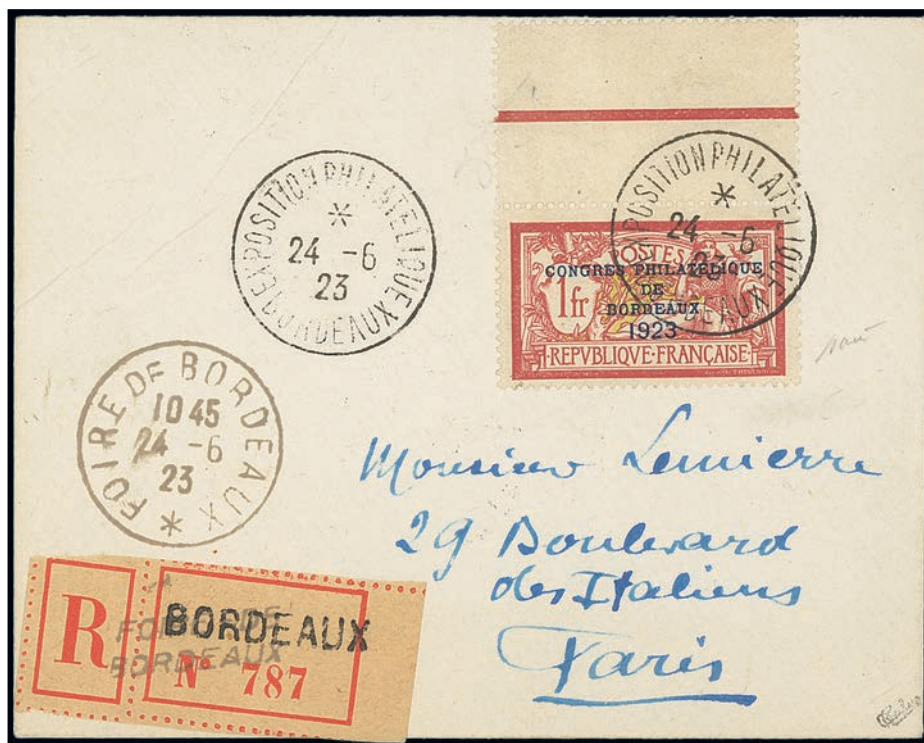 EXPOSITION PHILATELIQUE
*
24 -6
23
BORDEAUX
EXPOSITION PHILATELIQUE
*
24 -6
23
BORDEAUX
POSTES
CONGRES PHILATELIQUE
DE
BORDEAUX
1923
1fr
REPVBLIQVE·FRANÇAISE
FOIRE DE BORDEAUX *
10 45
24 -6
23
Monsieur Lemierre
29 Boulevard
des Italiens
Paris
R
FOIRE DE
BORDEAUX
BORDEAUX
N° 787